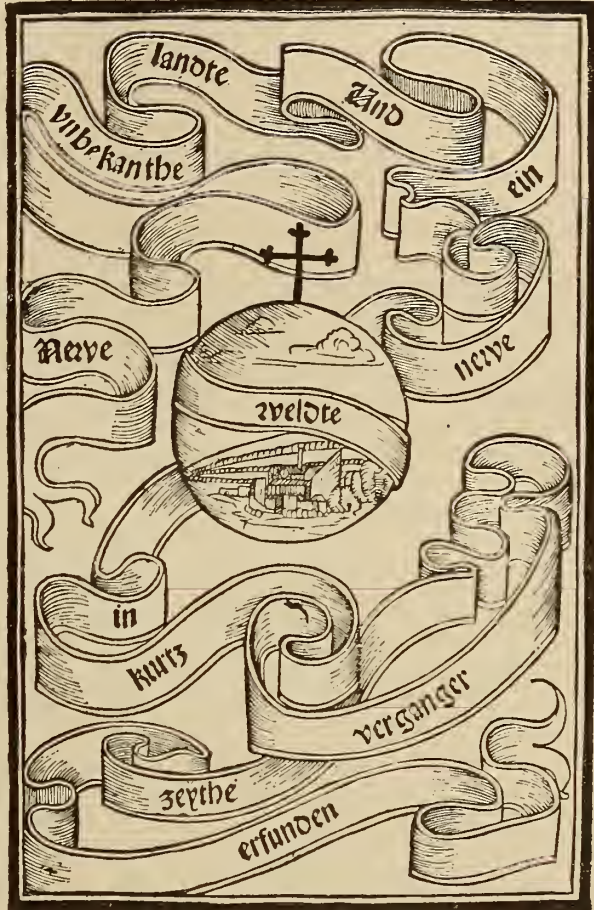 Newe
vnbekanthe
landte
Und
ein
newe
weldte
in
kurtz
verganger
zeythe
erfunden